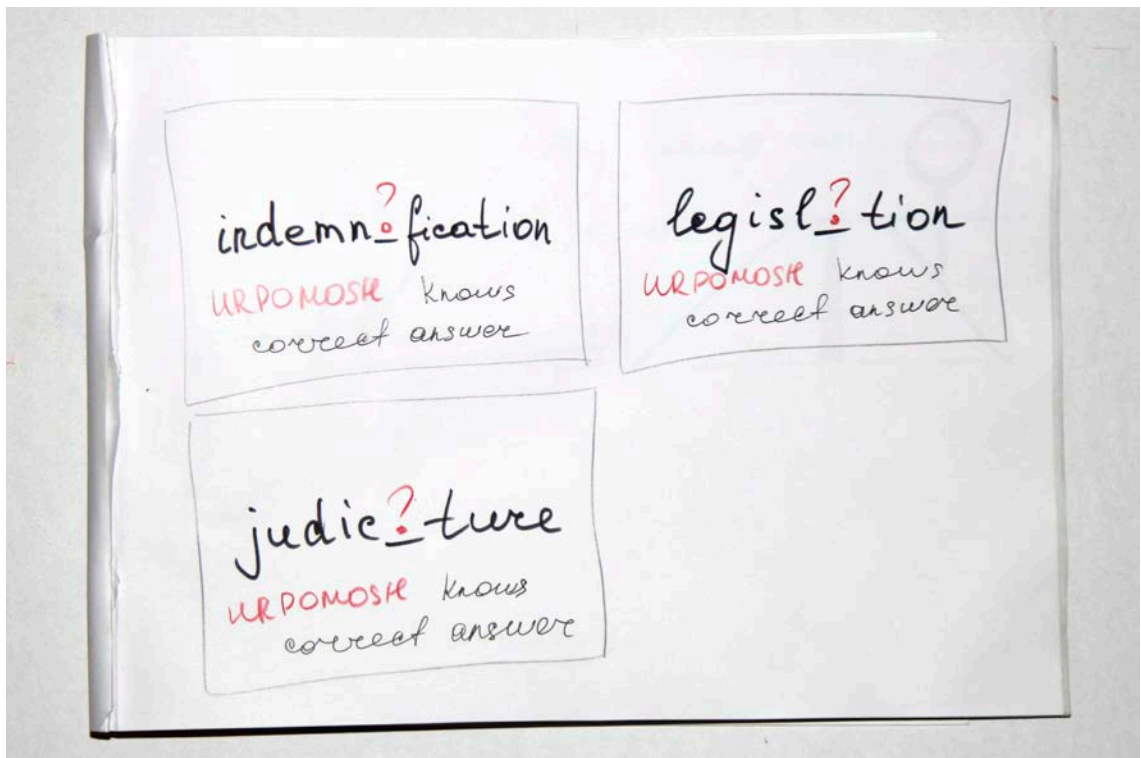 indemn?fication
URPOMOSH knows
correct answer
legisl?tion
URPOMOSH knows
correct answer
judic?ture
URPOMOSH knows
correct answer